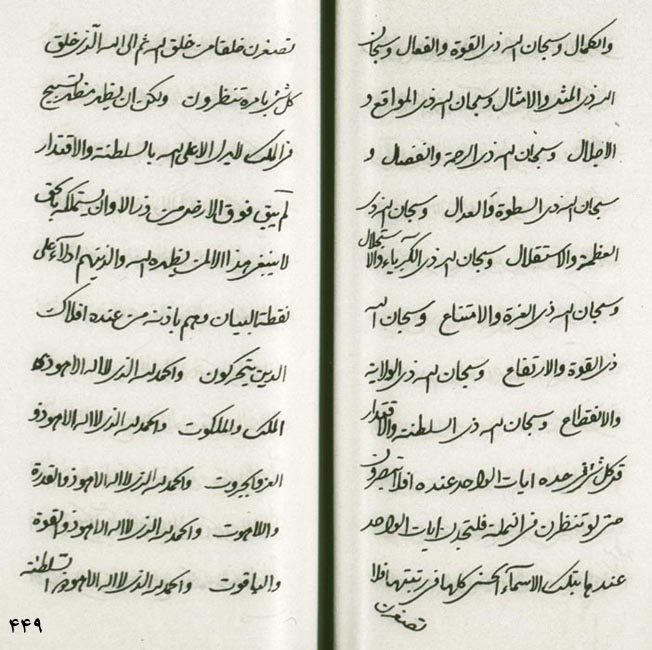 والكمال وسبحان الله ذي القوة والفعال وسبحان
الله ذي المثل والامثال وسبحان الله ذي المواقع و
الاجلال وسبحان الله ذي الرحمة والفضال و
سبحان الله ذي السطوة والعدال وسبحان الله ذي
العظمة والاستقلال وسبحان الله ذي الكبرياء والاستجلال
وسبحان الله ذي العزة والامتناع وسبحان الله
ذي القوة والارتفاع وسبحان الله ذي الولاية
والانقطاع وسبحان الله ذي السلطنة والاقتدار
قل كل شئ في حده ايات الواحد عنده افلا تبصرون
حتى لو تنظرن في النملة فلتجدن ايات الواحد
عندها بتلك الاسمآء الحسنى كلها في رتبتها فلا
تصغرن
تصغرن خلقا من خلق الله ثم الى الله الذي خلق
كل شئ بامره تنظرون ولكن ان يظهر مظهر تسبيح
في الملك لايرل الاعلى الله بالسلطنة والاقتدار
لم يبق فوق الارض من ذي الا وان يستملكه بالحق
لا ينبغي هذا الا لمن يظهره الله والذينهم ادلآء على
نقطة البيان وهم باذنه من عنده افلاك
الدين يتحركون والحمد لله الذي لا اله الا هو ذي
الملك والملكوت والحمد لله الذي لا اله الا هو ذو
العز والجبروت والحمد لله الذي لا اله الا هو ذو القدرة
واللاهوت والحمد لله الذي لا اله الا هو ذو القوة
والياقوت والحمد لله الذي لا اله الا هو ذي السلطنة
۴۴۹